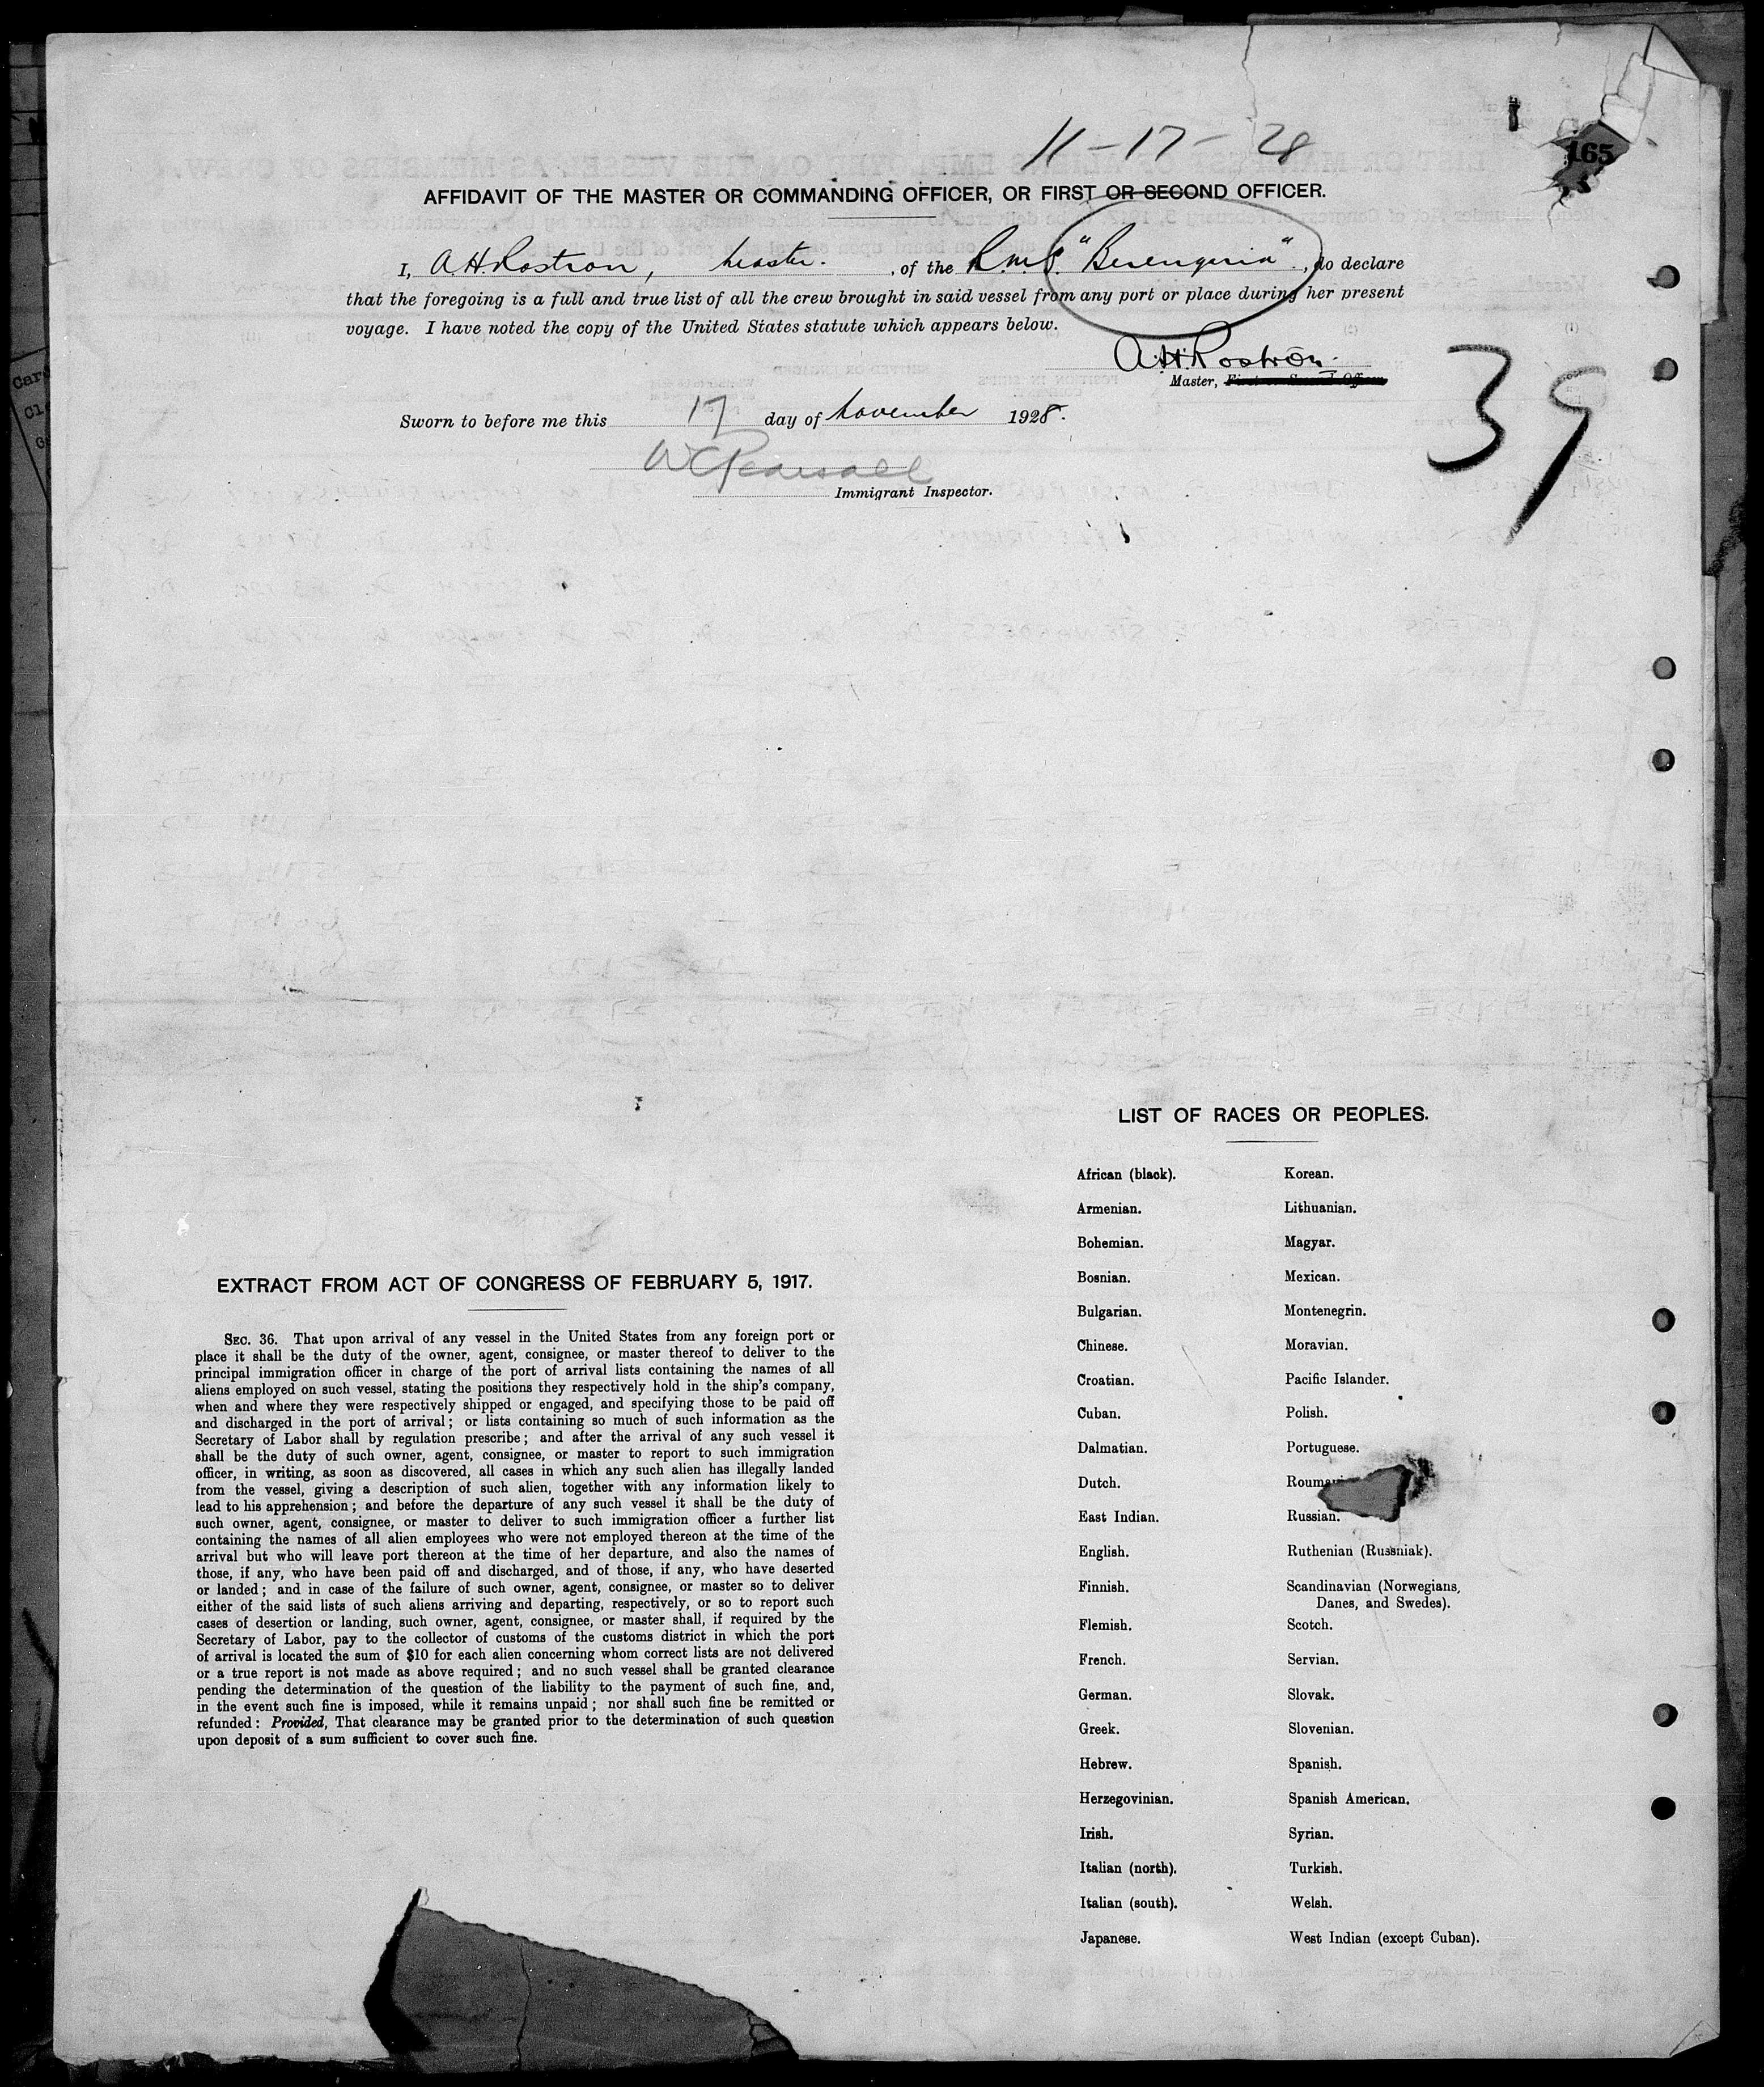 11-17-28
165
AFFIDAVIT OF THE MASTER OR COMMANDING OFFICER, OR FIRST OR SECOND OFFICER.
I, A.H.Rostron, Master. , of the R.M.S. "Berengaria" , do declare
that the foregoing is a full and true list of all the crew brought in said vessel from any port or place during her present
voyage. I have noted the copy of the United States statute which appears below.
A.H.Rostron.
Master, First or Second Officer.
39
Sworn to before me this 17 day of November 1928.
W C Pearsall
Immigrant Inspector.
LIST OF RACES OR PEOPLES.
African (black). Korean.
Armenian. Lithuanian.
Bohemian. Magyar.
Bosnian. Mexican.
Bulgarian. Montenegrin.
Chinese. Moravian.
Croatian. Pacific Islander.
Cuban. Polish.
Dalmatian. Portuguese.
Dutch.
East Indian. Russian.
English. Ruthenian (Russniak).
Finnish. Scandinavian (Norwegians,
Danes, and Swedes).
Flemish. Scotch.
French. Servian.
German. Slovak.
Greek. Slovenian.
Hebrew. Spanish.
Herzegovinian. Spanish American.
Irish. Syrian.
Italian (north). Turkish.
Italian (south). Welsh.
Japanese. West Indian (except Cuban).
EXTRACT FROM ACT OF CONGRESS OF FEBRUARY 5, 1917.
SEC. 36. That upon arrival of any vessel in the United States from any foreign port or
place it shall be the duty of the owner, agent, consignee, or master thereof to deliver to the
principal immigration officer in charge of the port of arrival lists containing the names of all
aliens employed on such vessel, stating the positions they respectively hold in the ship's company,
when and where they were respectively shipped or engaged, and specifying those to be paid off
and discharged in the port of arrival; or lists containing so much of such information as the
Secretary of Labor shall by regulation prescribe; and after the arrival of any such vessel it
shall be the duty of such owner, agent, consignee, or master to report to such immigration
officer, in writing, as soon as discovered, all cases in which any such alien has illegally landed
from the vessel, giving a description of such alien, together with any information likely to
lead to his apprehension; and before the departure of any such vessel it shall be the duty of
such owner, agent, consignee, or master to deliver to such immigration officer a further list
containing the names of all alien employees who were not employed thereon at the time of the
arrival but who will leave port thereon at the time of her departure, and also the names of
those, if any, who have been paid off and discharged, and of those, if any, who have deserted
or landed; and in case of the failure of such owner, agent, consignee, or master so to deliver
either of the said lists of such aliens arriving and departing, respectively, or so to report such
cases of desertion or landing, such owner, agent, consignee, or master shall, if required by the
Secretary of Labor, pay to the collector of customs of the customs district in which the port
of arrival is located the sum of $10 for each alien concerning whom correct lists are not delivered
or a true report is not made as above required; and no such vessel shall be granted clearance
pending the determination of the question of the liability to the payment of such fine, and,
in the event such fine is imposed, while it remains unpaid; nor shall such fine be remitted or
refunded: Provided, That clearance may be granted prior to the determination of such question
upon deposit of a sum sufficient to cover such fine.